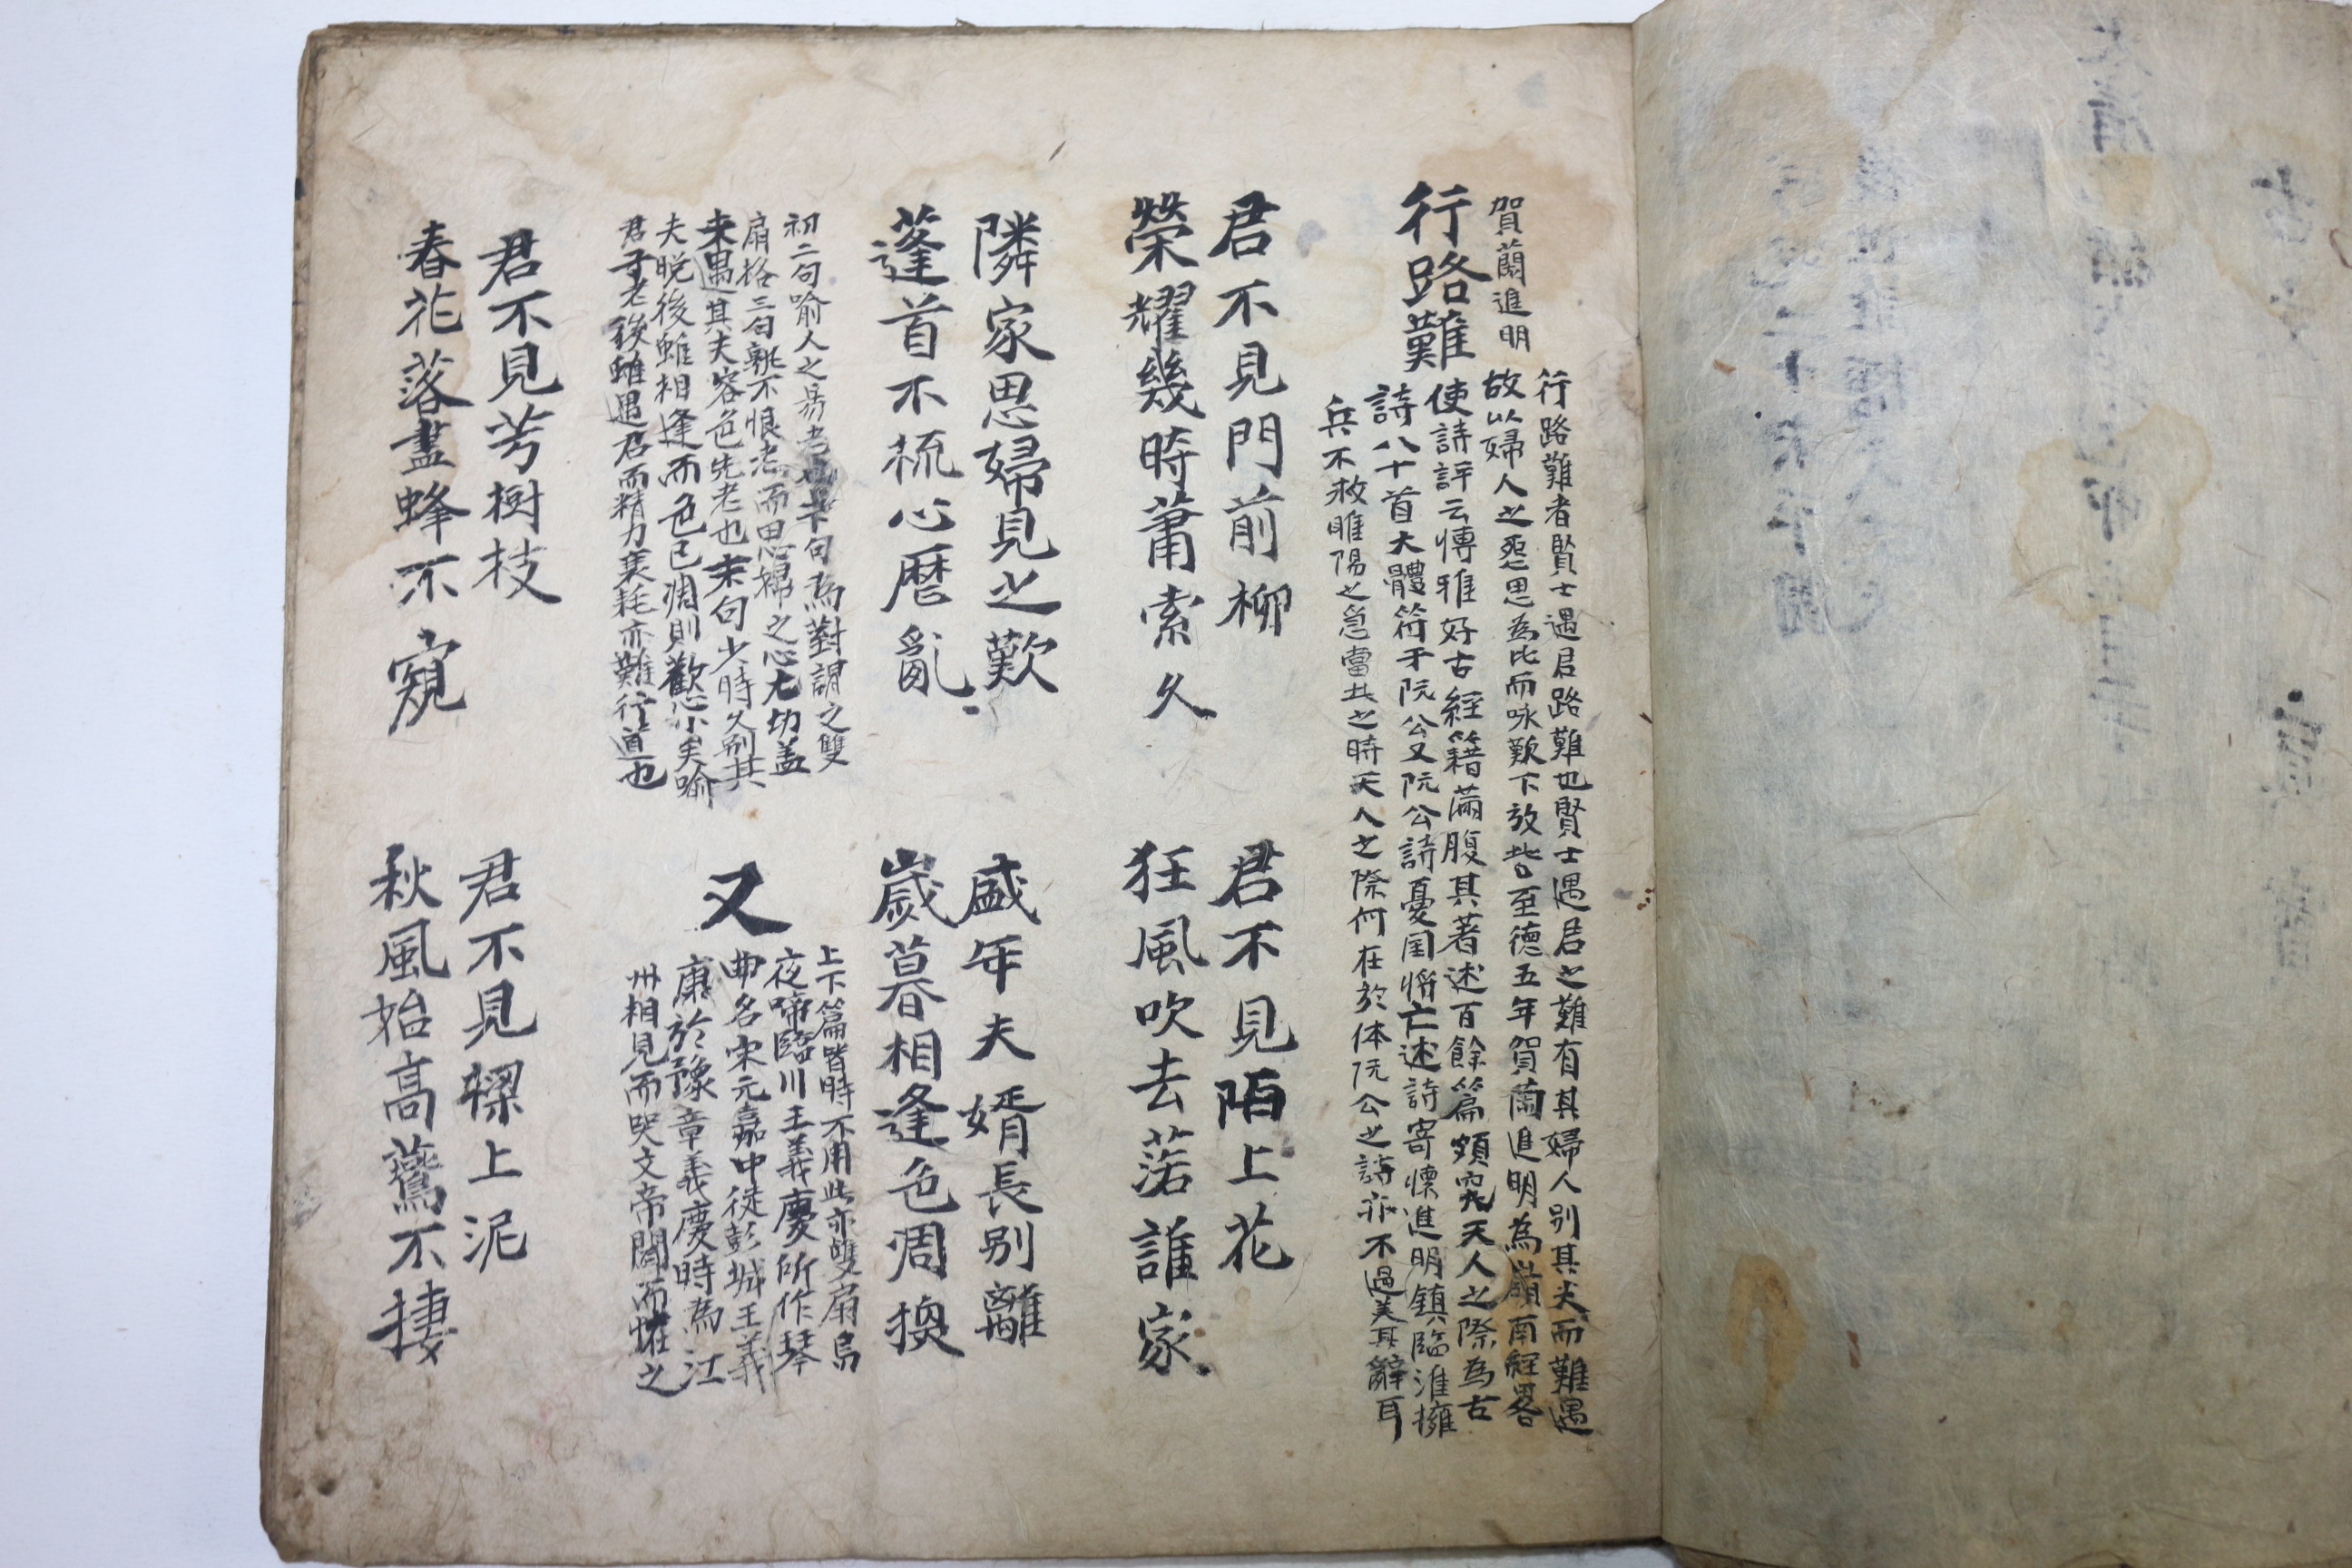 賀蘭進明
行路難
行路難者賢士遇君路難也賢士遇君之難有其婦人別其夫而難遇
故以婦人之怨思為比而咏歎下放此至德五年賀蘭進明為嶺南經畧
使詩評云愽雅好古經籍滿腹其著述百餘篇頗究天人之際為古
詩八十首大體符于阮公又阮公詩憂国将亡述詩寄懷進明鎮臨淮擁
兵不救睢陽之急當其之時天人之際何在於体阮公之詩亦不過美其辭耳
君不見門前柳
君不見陌上花
榮耀幾時蕭索久
狂風吹去落誰家
隣家思婦見之歎
盛年夫婿長別離
蓬首不梳心曆亂
歲暮相逢色凋換
初二句喻人之易老也 句為對謂之雙
扇格三句孰不恨老而思婦之心尤切盖
未遇其夫容色先老也末句少時久別其
夫晩後雖相逢而色已凋則歡心小矣喻
君子老後雖遇君而精力衰耗亦難行道也
又
上下篇皆時不用此亦雙扇烏
夜啼臨川王義慶所作琴
曲名宋元嘉中徙彭城王義
康於豫章義慶時為江
州相見而哭文帝聞而恠之
君不見芳樹枝
君不見樑上泥
春花落盡蜂不窺
秋風始高鷰不捿